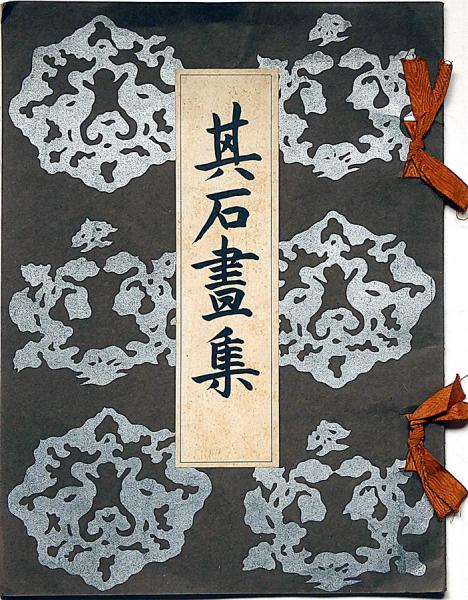 其石畫集